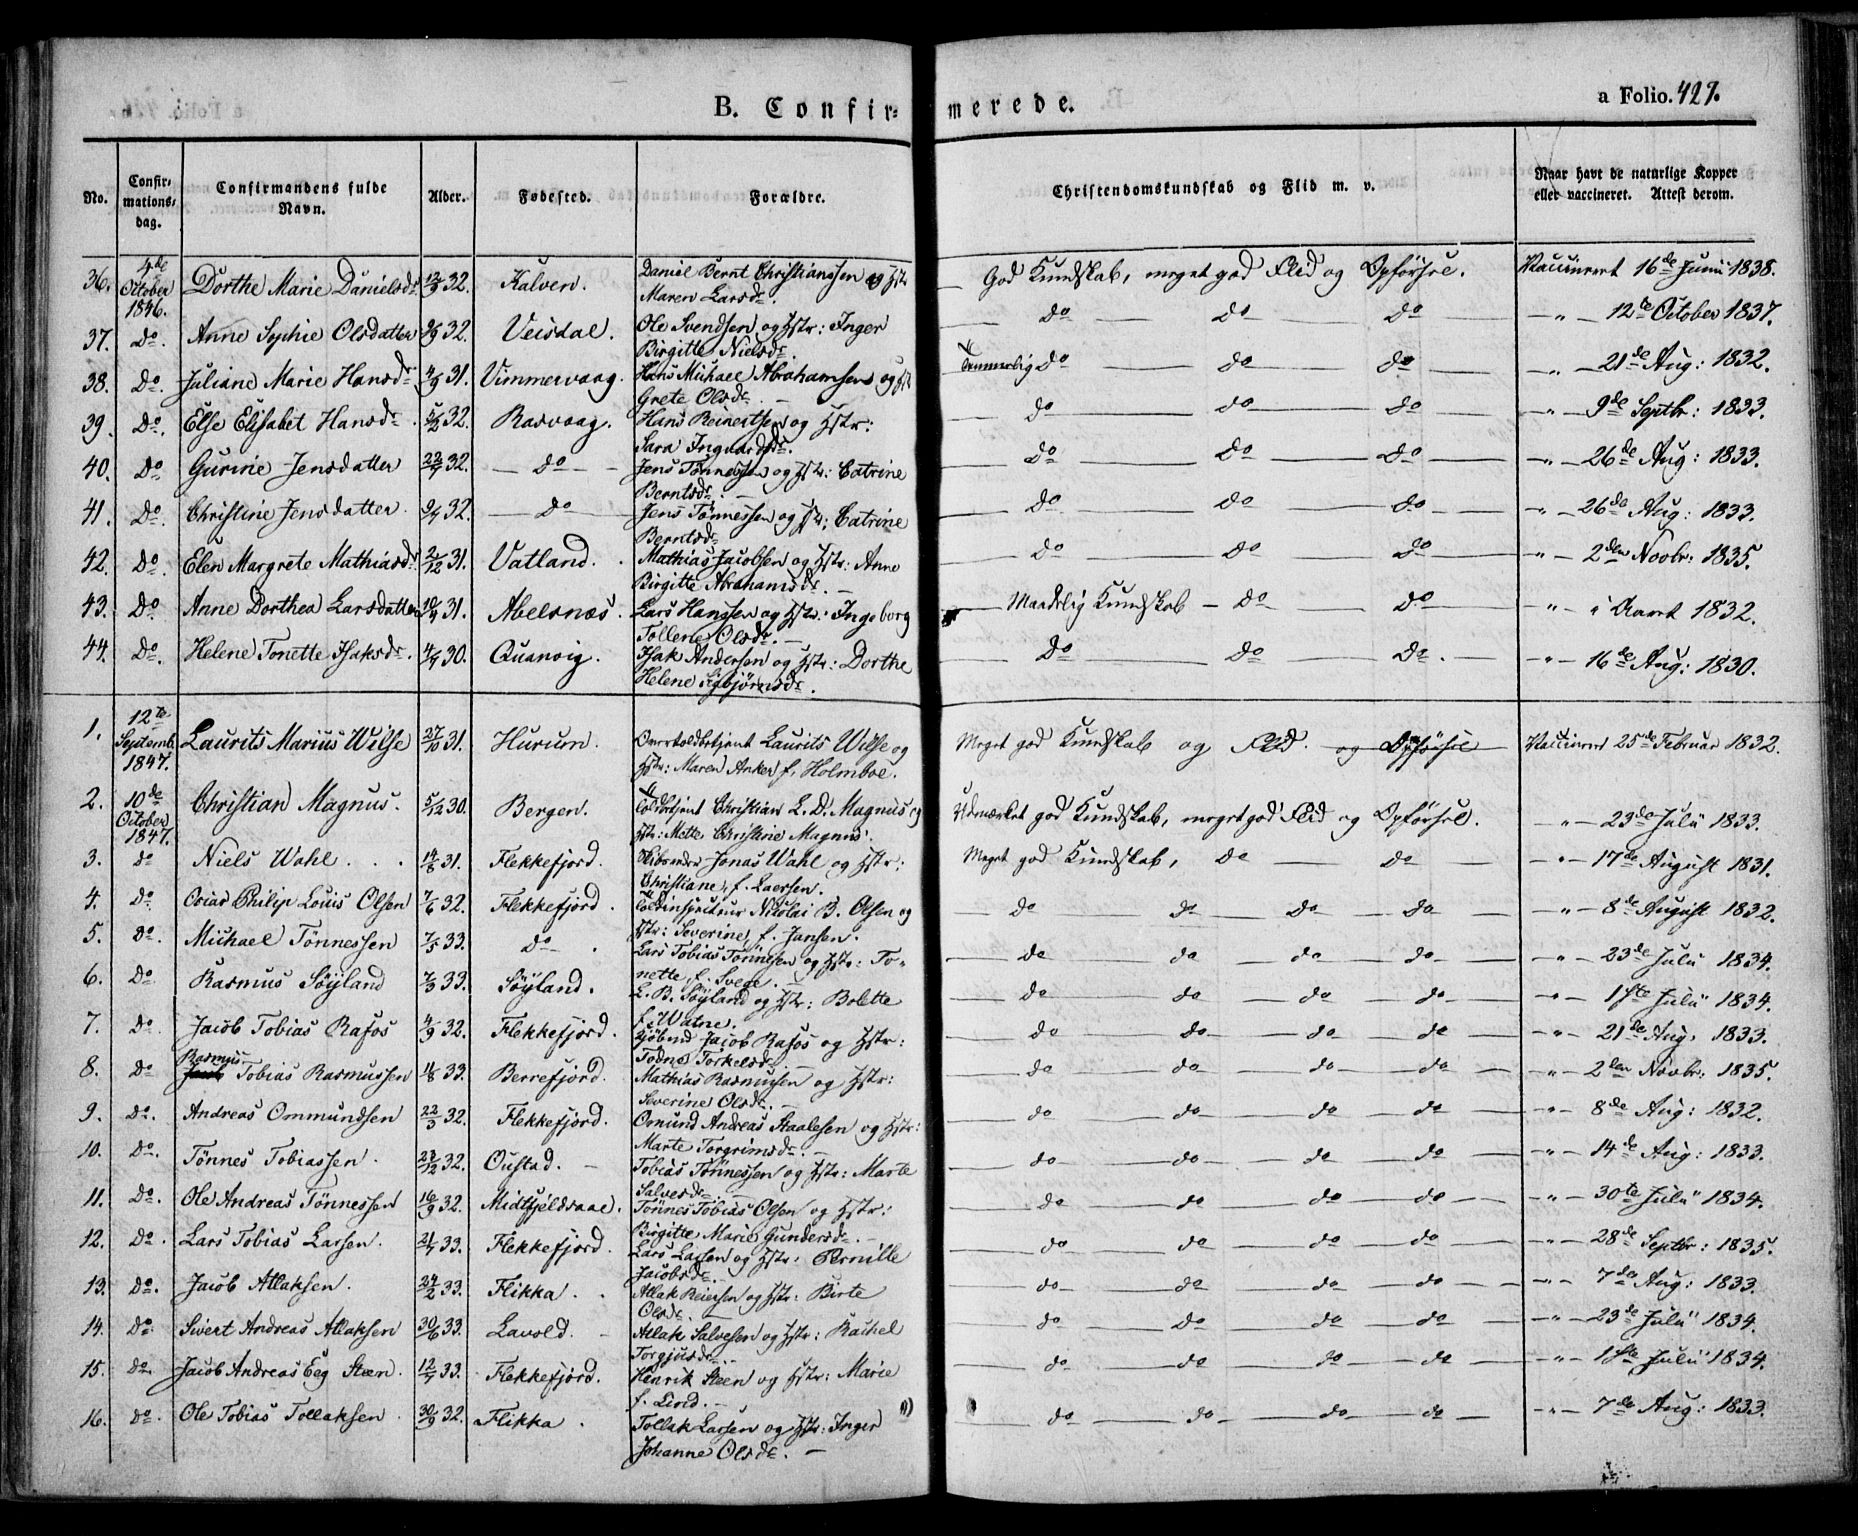 B. Confir= merede.
a Folio. 427.
No. Confir=mations=dag. Confirmandens fulde Navn. Alder. Fødested. Forældre. Christendomskundskab og Flid m. v. Naar havt de naturlige Kopper eller vaccineret. Attest derom.
36. 4de October 1846. Dorthe Marie Danielsdr 12/3 32. Kalven. Daniel Bernt Christianssen og Hstr Maren Larsdr. God Kundskab, meget god Flid og Opførsel. Vaccineret 16de Junii 1838.
37. Do. Anne Sophie Olsdatter 32. Veisdal. Ole Svendsen og Hstr: Inger Birgitte Nielsdr. do do do -"- 12te October 1837.
38. Do. Juliane Marie Hansdr 4/9 31. Vimmervaag. Hans Michael Abrahamsen og Hst Grete Olsdr. Temmelig do do do -"- 21de Aug: 1832.
39. Do. Else Elisabet Hansdr. 5/2 32. Rasvaag. Hans Reinertsen og Hstr: Sara Ingvardsdr. do do do -"- 9de Septbr: 1833.
40. Do. Gurine Jensdatter 22/7 32. do Jens Tønnessen og Hstr: Catrine Berntsdr. do do do -"- 26de Aug: 1833.
41. Do. Christine Jensdatter 32. do Jens Tønnessen og Hstr: Catrine Berntsdr. do do do -"- 26de Aug: 1833.
42. Do. Elen Margrete Mathiasdr 2/12 31. Vatland. Mathias Jacobsen og Hstr: Anne Birgitte Abrahamsdr. do do do -"- 2den Novbr: 1835.
43. Do. Anne Dorthea Larsdatter 31. Abelsnæs. Lars Hanssen og Hstr: Ingeborg Tollene Olsdr. Maadelig Kundskab - do do -"- i Aaret 1832.
44. Do. Helene Tonette Isaksdr. 30. Quanvig. Isak Andersen og Hstr: Dorthe Helene Sigbjørnsdr. do do do. -"- 16de Aug: 1830.
1. 12te Septemb. 1847. Laurits Marius Wilse 27/10 31. Hurum. Overtoldbetjent Laurits Wilse og Hstr: Maren Anker f. Holmboe. Meget god Kundskab og Flid. og Opførsel Vaccineret 25de Februar 1832.
2. 10de October 1847. Christian Magnus. 5/12 30. Bergen. Toldbetjent Christian L. D. Magnus og Hstr: Mette Christine Magnus. Udmærket god Kundskab, meget god Flid og Opførsel. -"- 23de Julii 1833.
3. do Niels Wahl. 14/8 31. Flekkefjord. Jonas Wahl og Hstr: Christiane, f. Laersen. Meget god Kundskab, do do -"- 17de August 1831.
4. Do. Philip Louis Olsen 7/6 32. Flekkefjord. Toldinspecteur Nicolai B. Olsen og Hstr: Severine, f. Jansen. do do do do -"- 8de August 1832.
5. Do. Michael Tønnessen 7/5 33. do Lars Tobias Tønnesen og Hstr: To=nette, f. Svege. do do do do -"- 23de Julii 1834.
6. Do Rasmus Søyland 7/3 33. Søyland. L. B. Søyland og Hstr: Bolette f. Watne. do do do do -"- 1ste Julii 1834.
7. Do. Jacob Tobias Rafos 4/9 32. Flekkefjord. Kjøbmd Jacob Rafos og Hstr: Todne Torkelsdr. do do do do -"- 21de Aug: 1833.
8. Do Rasmus Tobias Rasmussen 33. Berrefjord. Mathias Rasmusen og Hstr: Severine Olsdr. do do do do -"- 2den Novbr: 1835.
9. Do. Andreas Ommundsen 22/3 32. Flekkefjord. Omund Andreas Staalesen og Hstr: Marte Torgrimsdr. do do do do -"- 8de Aug: 1832.
10. Do. Tønnes Tobiassen. 23/12 32. Oustad. Tobias Tønnessen og Hstr: Marte Salvesdr. do do do do -"- 14de Aug: 1833.
11. Do. Ole Andreas Tønnessen 16/9 32. Midtfjeldsaae. Tønnes Tobias Olsen og Hstr: Birgitte Marie Gundersdr. do do do do -"- 30te Julii 1834.
12. Do. Lars Tobias Larsen. 21/7 33. Flekkefjord. Lars Larsen og Hstr: Pernille Jacobsdr. do do do do -"- 28de Septbr: 1835.
13. Do. Jacob Atlaksen. 24/2 33. Flikka. Atlak Reiersen og Hstr: Birte Olsdr. do do do do -"- 7de Aug: 1833.
14. Do Sivert Andreas Atlaksen 30/6 33. Lavold. Atlak Salvesen og Hstr: Rachel Torgjusdr. do do do do -"- 23de Julii 1834.
15. do. Jacob Andreas Eeg Steen. 12/7 33. Flekkefjord. Henrik Steen og Hstr: Marie f. Lind. do do do do -"- 1ste Julii 1834.
16. do. Ole Tobias Tollaksen. 30/9 32. Flikka. Tollak Larsen og Hstr: Inger Johanne Olsdr. do do do do -"- 7de Aug: 1833.